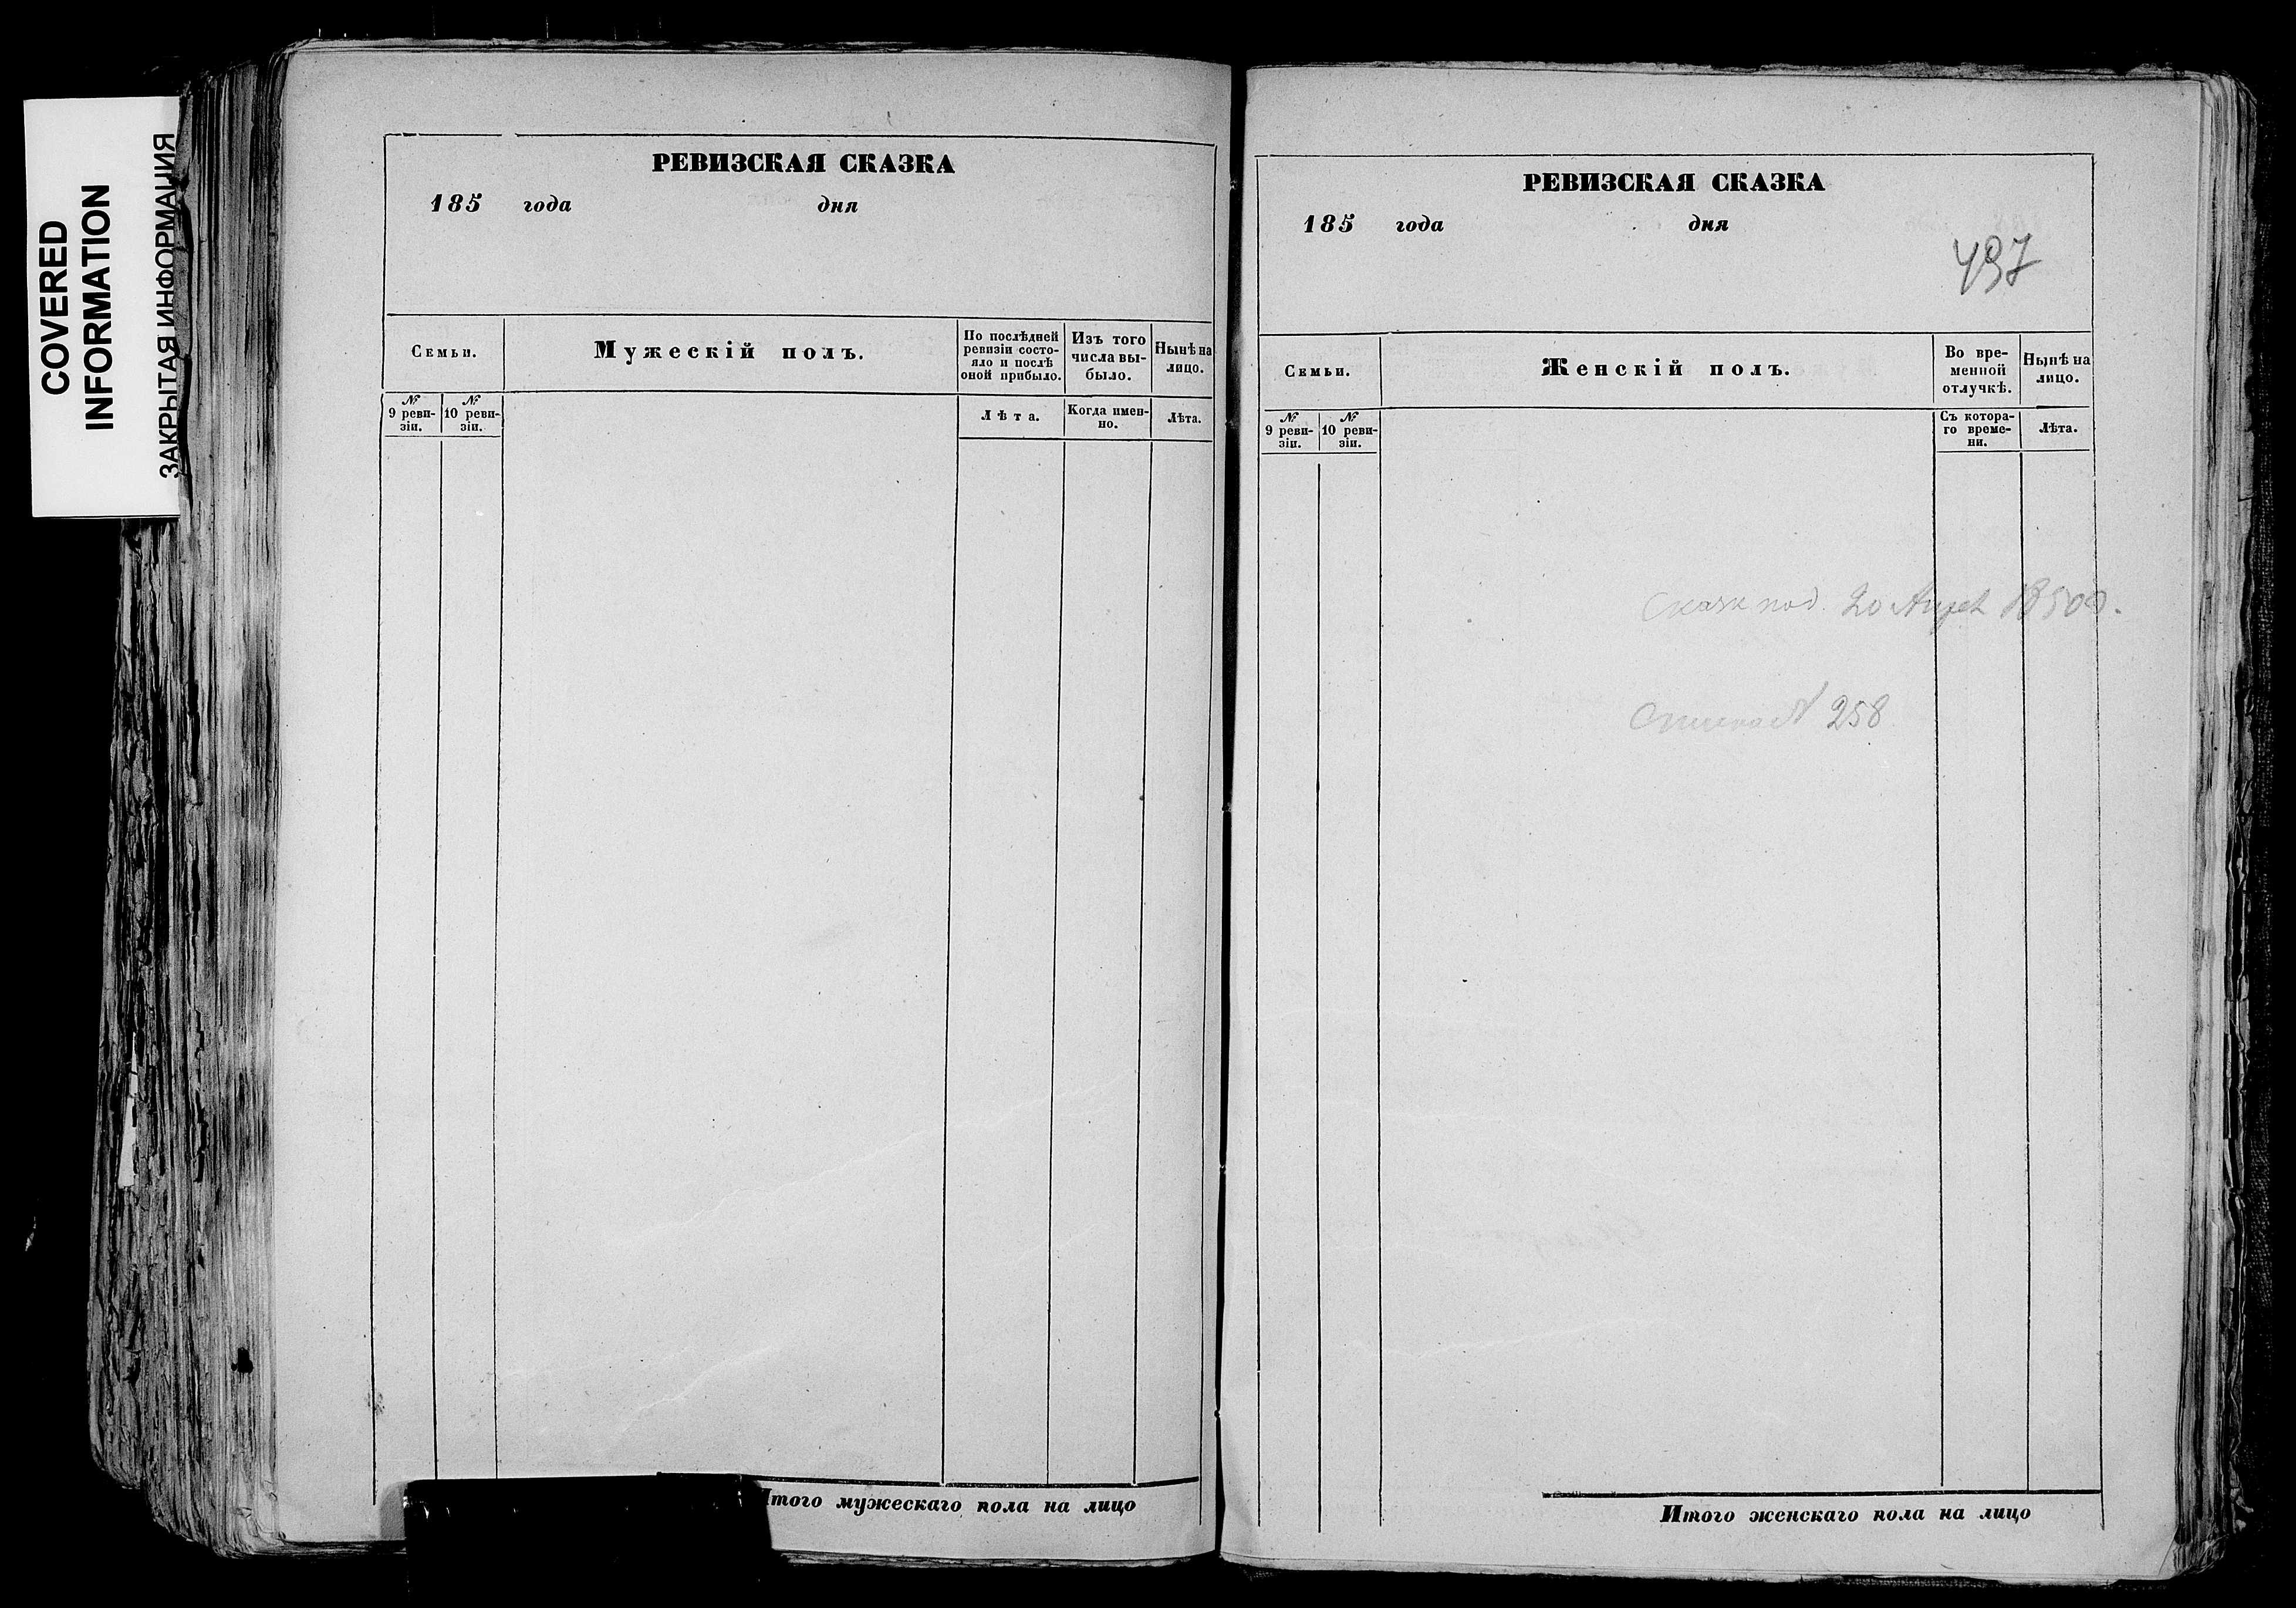 COVERED
INFORMATION
ЗАКРЫТАЯ ИНФОРМАЦИЯ
РЕВИЗСКАЯ СКАЗКА
185 года дня
Семьи.
Мужескій полъ.
По послѣдней
ревизіи состо-
яло и послѣ
оной прибыло.
Изъ того
числа вы-
было.
Нынѣ на
лицо.
№
9 реви-
зіи.
№
10 реви-
зіи.
Лѣта.
Когда имен-
но.
Лѣта.
Итого мужескаго пола на лицо
РЕВИЗСКАЯ СКАЗКА
185 года дня
497
Семьи.
Женскій полъ.
Во вре-
менной
отлучкѣ.
Нынѣ на
лицо.
№
9 реви-
зіи.
№
10 реви-
зіи.
Съ котора-
го време-
ни.
Лѣта.
под. 20
№ 258
Итого женскаго пола на лицо